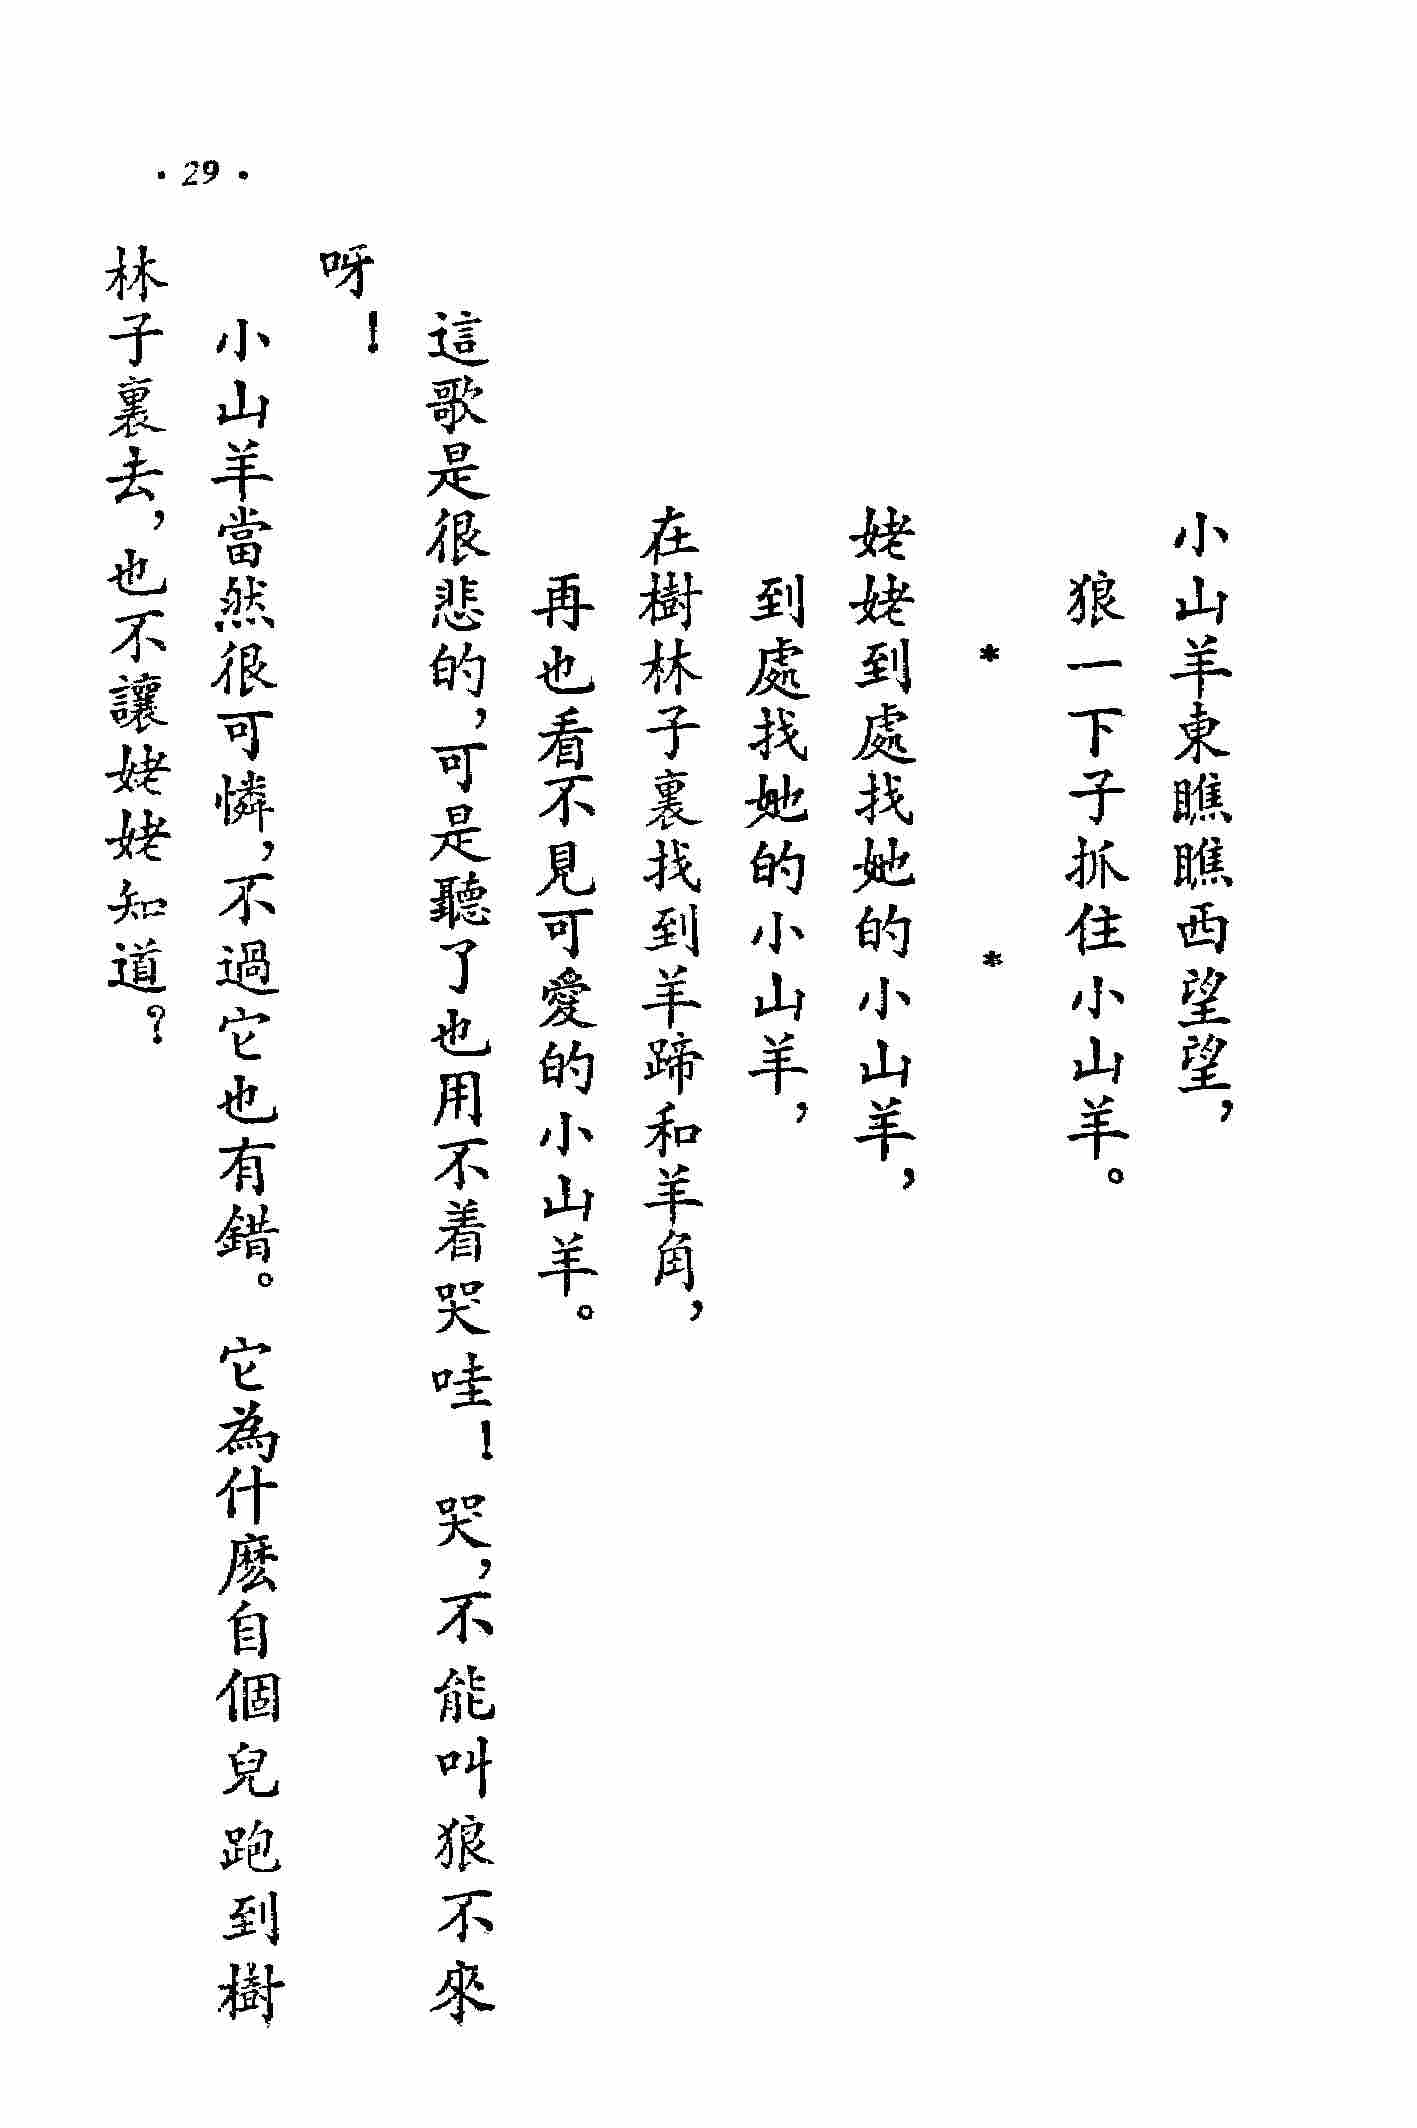 小山羊東瞧瞧西望望，
狼一下子抓住小山羊。
* *
姥姥到處找她的小山羊，
到處找她的小山羊，
在樹林子裏找到羊蹄和羊角，
再也看不見可愛的小山羊。
這歌是很悲的，可是聽了也用不着哭哇！哭，不能叫狼不來
呀！
小山羊當然很可憐，不過它也有錯。它為什麽自個兒跑到樹
林子裏去，也不讓姥姥知道？
·29·